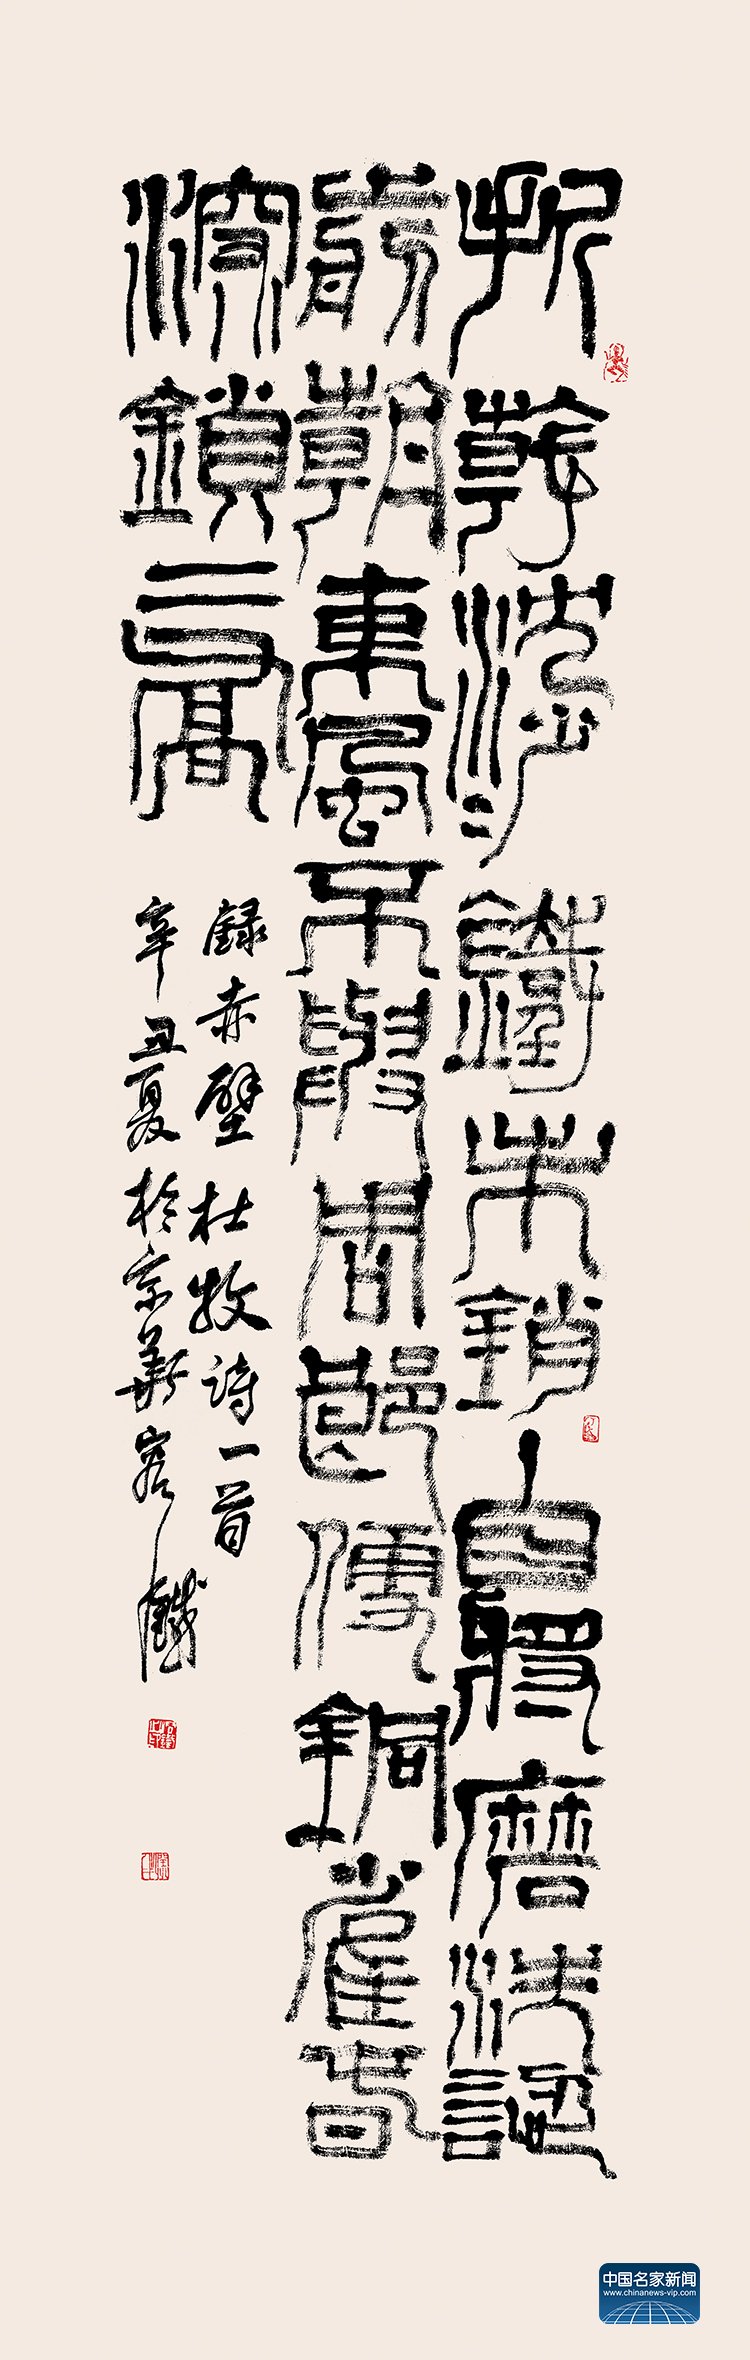 折戟沈沙鐵未銷自將磨洗認
前朝東風不與周郎便銅雀春
深鎖二喬
録赤壁杜牧诗一首
辛丑夏於京華
中国名家新闻
www.chinanews-vip.com